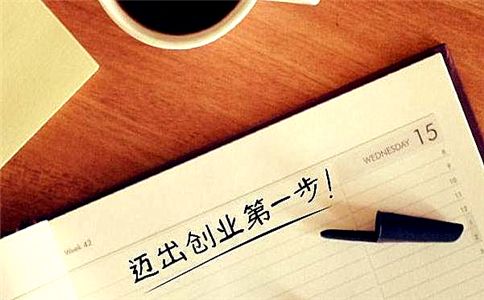 WEDNESDAY 15
Week 42
迈出创业第一步!
8
9
10
11
12